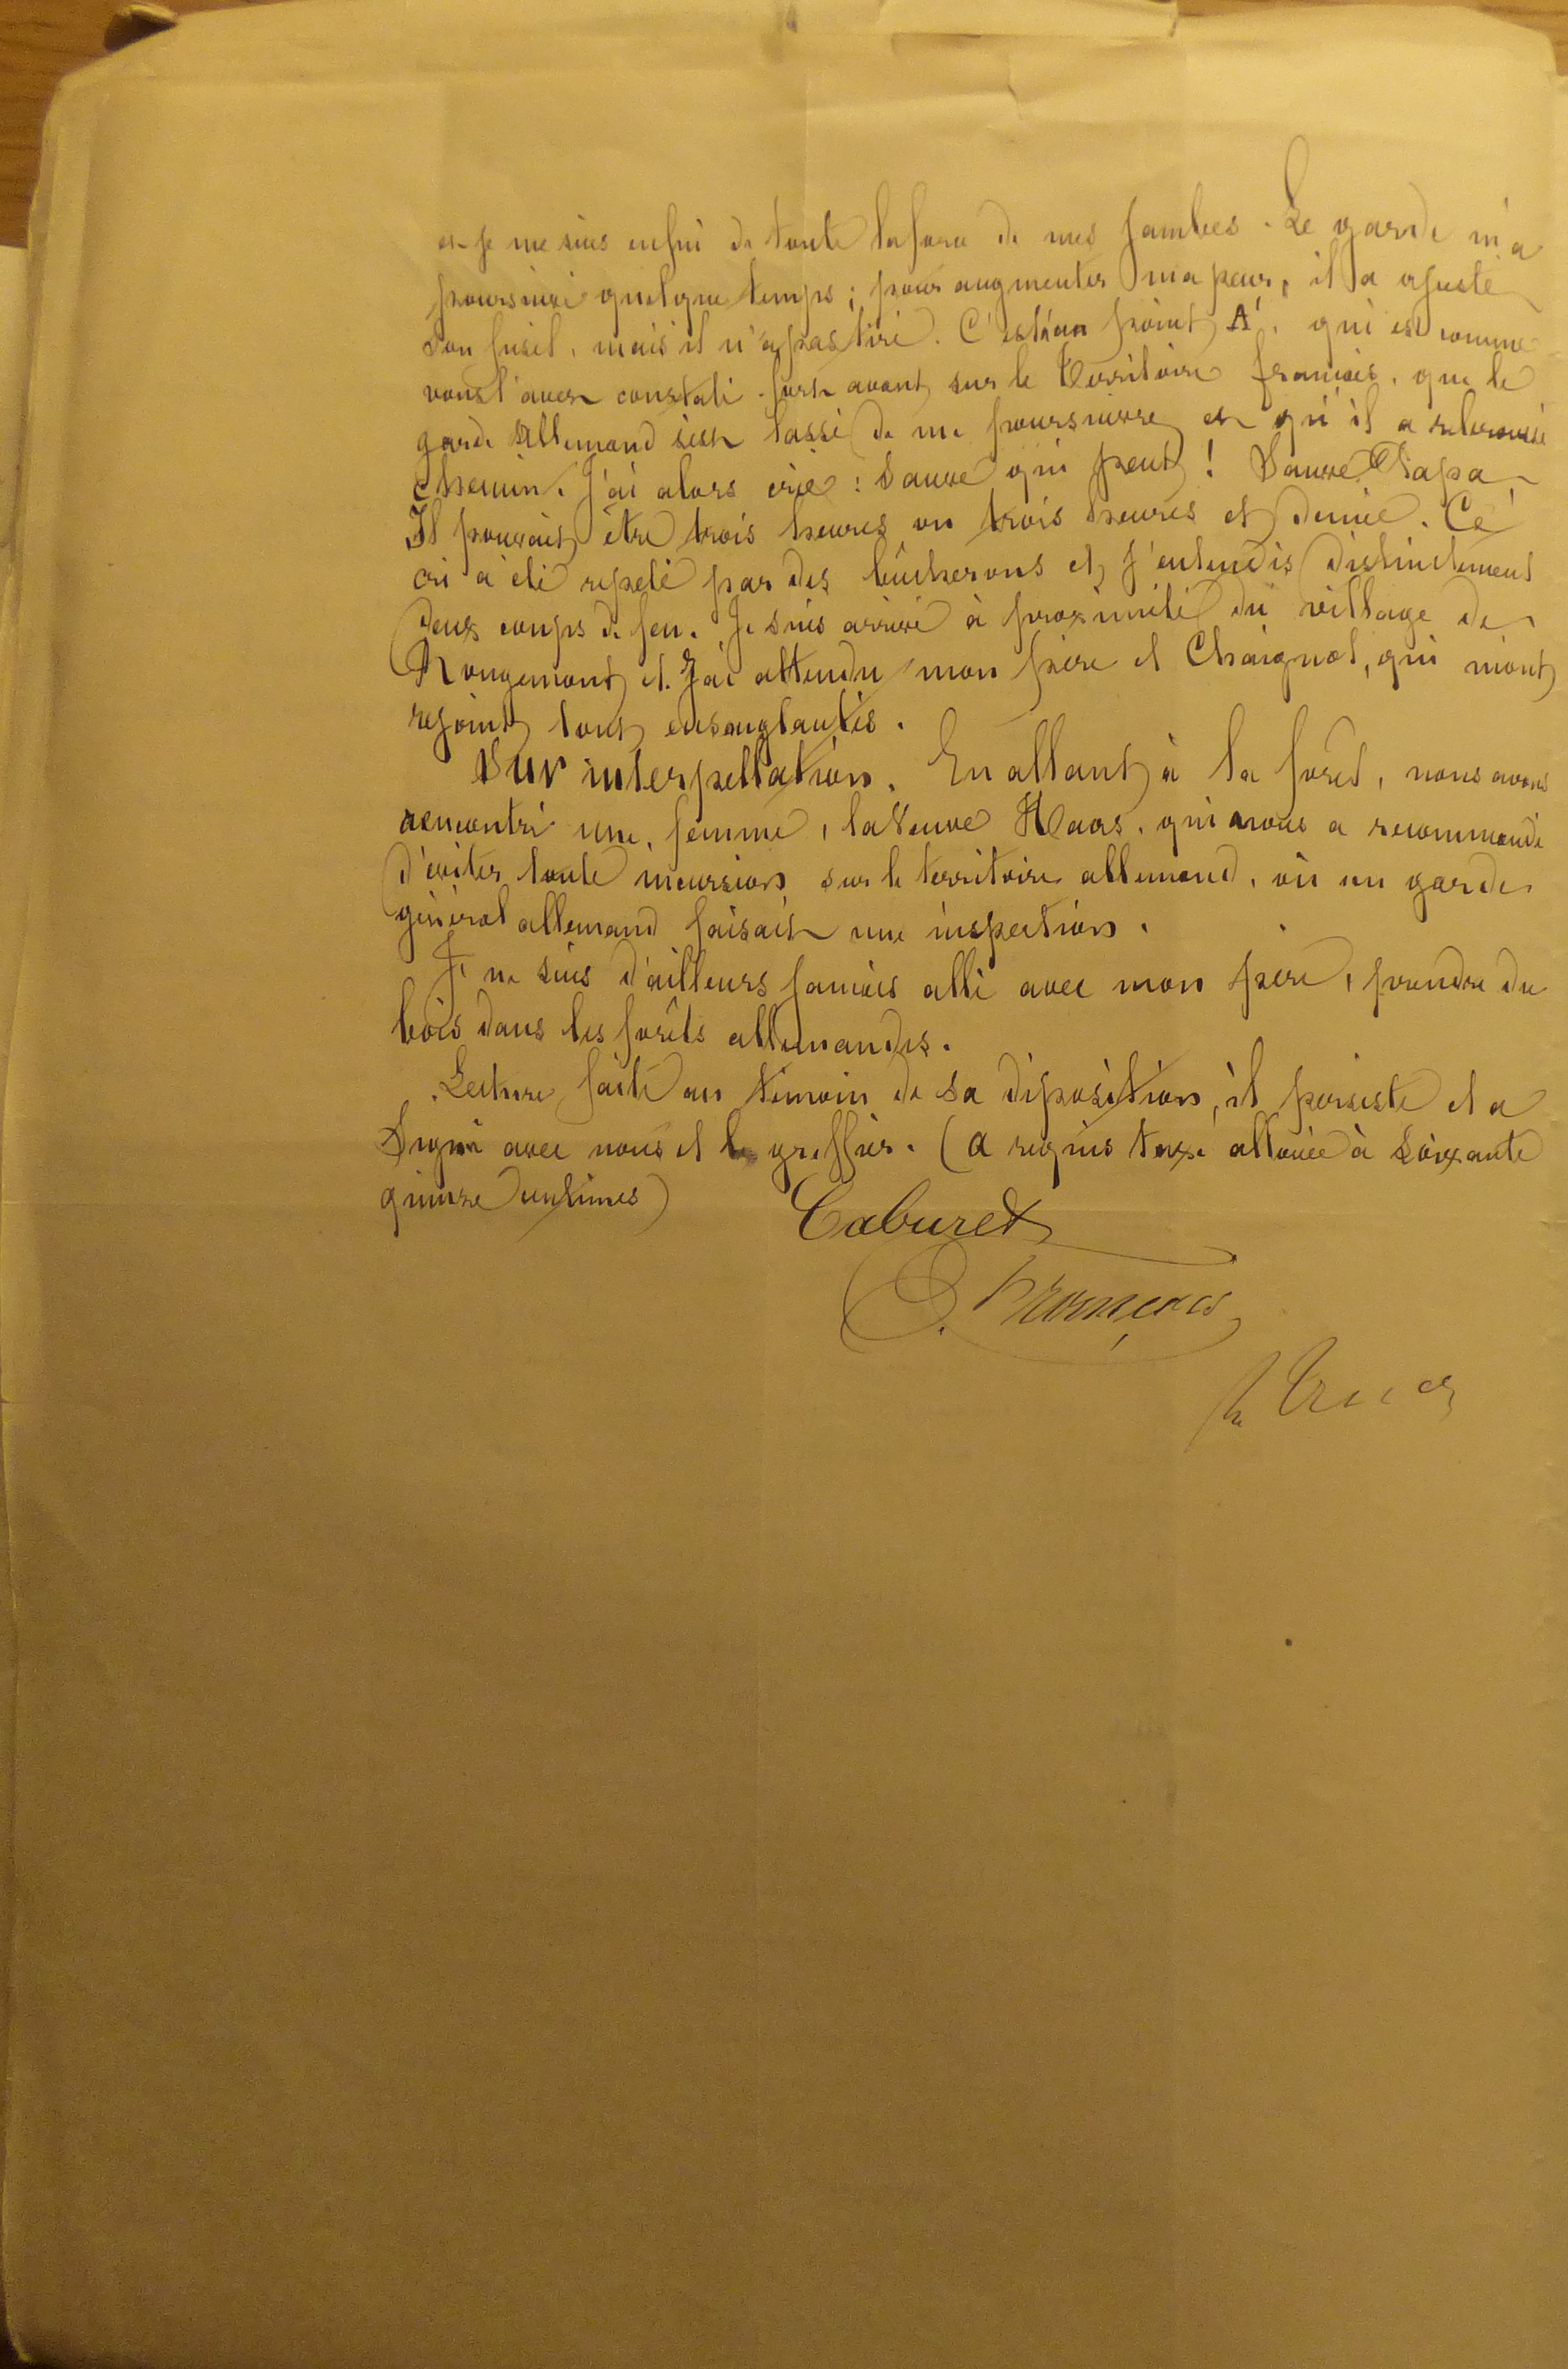 et je me suis enfui de toute la force de mes jambes. Le garde m'a
poursuivi quelque temps ; pour augmenter ma peur, il a ajusté
son fusil, mais il n'a pas tiré. C'est au point A', qui est comme
vous l'avez constaté fort avant sur le territoire français, que le
garde Allemand s'est lassé de me poursuivre et qu'il a rebroussé
chemin. J'ai alors crié : Sauve qui peut ! Sauve Papa
Il pouvait être trois heures ou trois heures et demie. Ce
cri a été répété par des bûcherons et j'entendis distinctement
deux coups de feu. Je suis arrivé à proximité du village de
Rougemont et j'ai attendu mon père et Chaignat, qui m'ont
rejoint tout ensanglantés.
Sur interpellation. En allant à la forêt, nous avons
rencontré une femme, la Veuve Haas, qui nous a recommandé
d'éviter toute incursion sur le territoire allemand, où un garde
général allemand faisait une inspection.
Je ne suis d'ailleurs jamais allé avec mon père, prendre du
bois dans les forêts allemandes.
Lecture faite au témoin de sa déposition, il persiste et a
Signé avec nous et le greffier. (a requis taxe allouée à soixante
quinze centimes)
Caburet
François